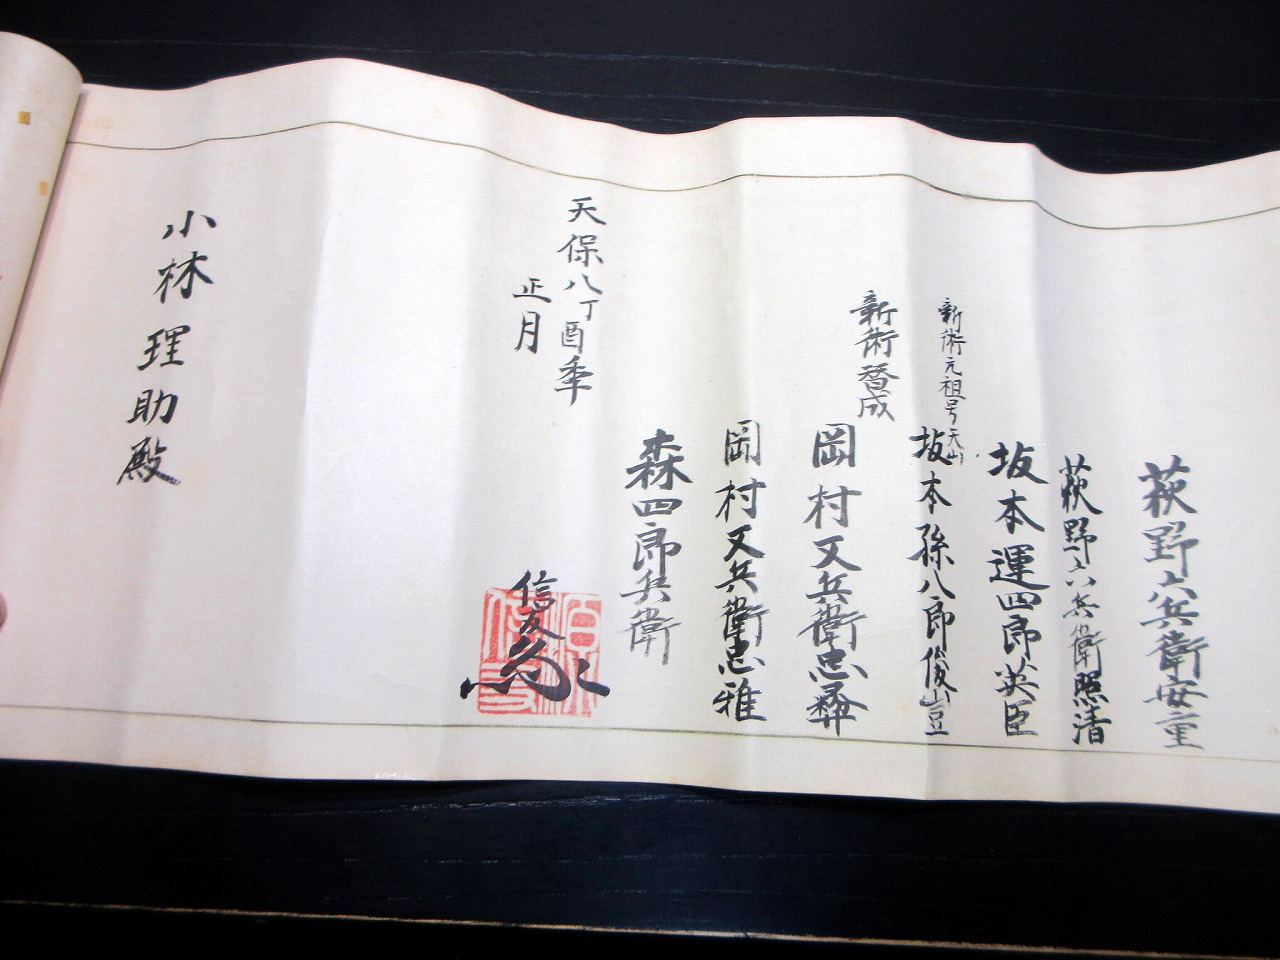 萩野六兵衛安重
萩野六兵衛照清
坂本運四郎英臣
新術元祖号天山
坂本孫八郎俊豈
新術督成
岡村又兵衛忠彜
岡村又兵衛忠雅
森四郎兵衛
信友
天保八丁酉季
正月
小林理助殿